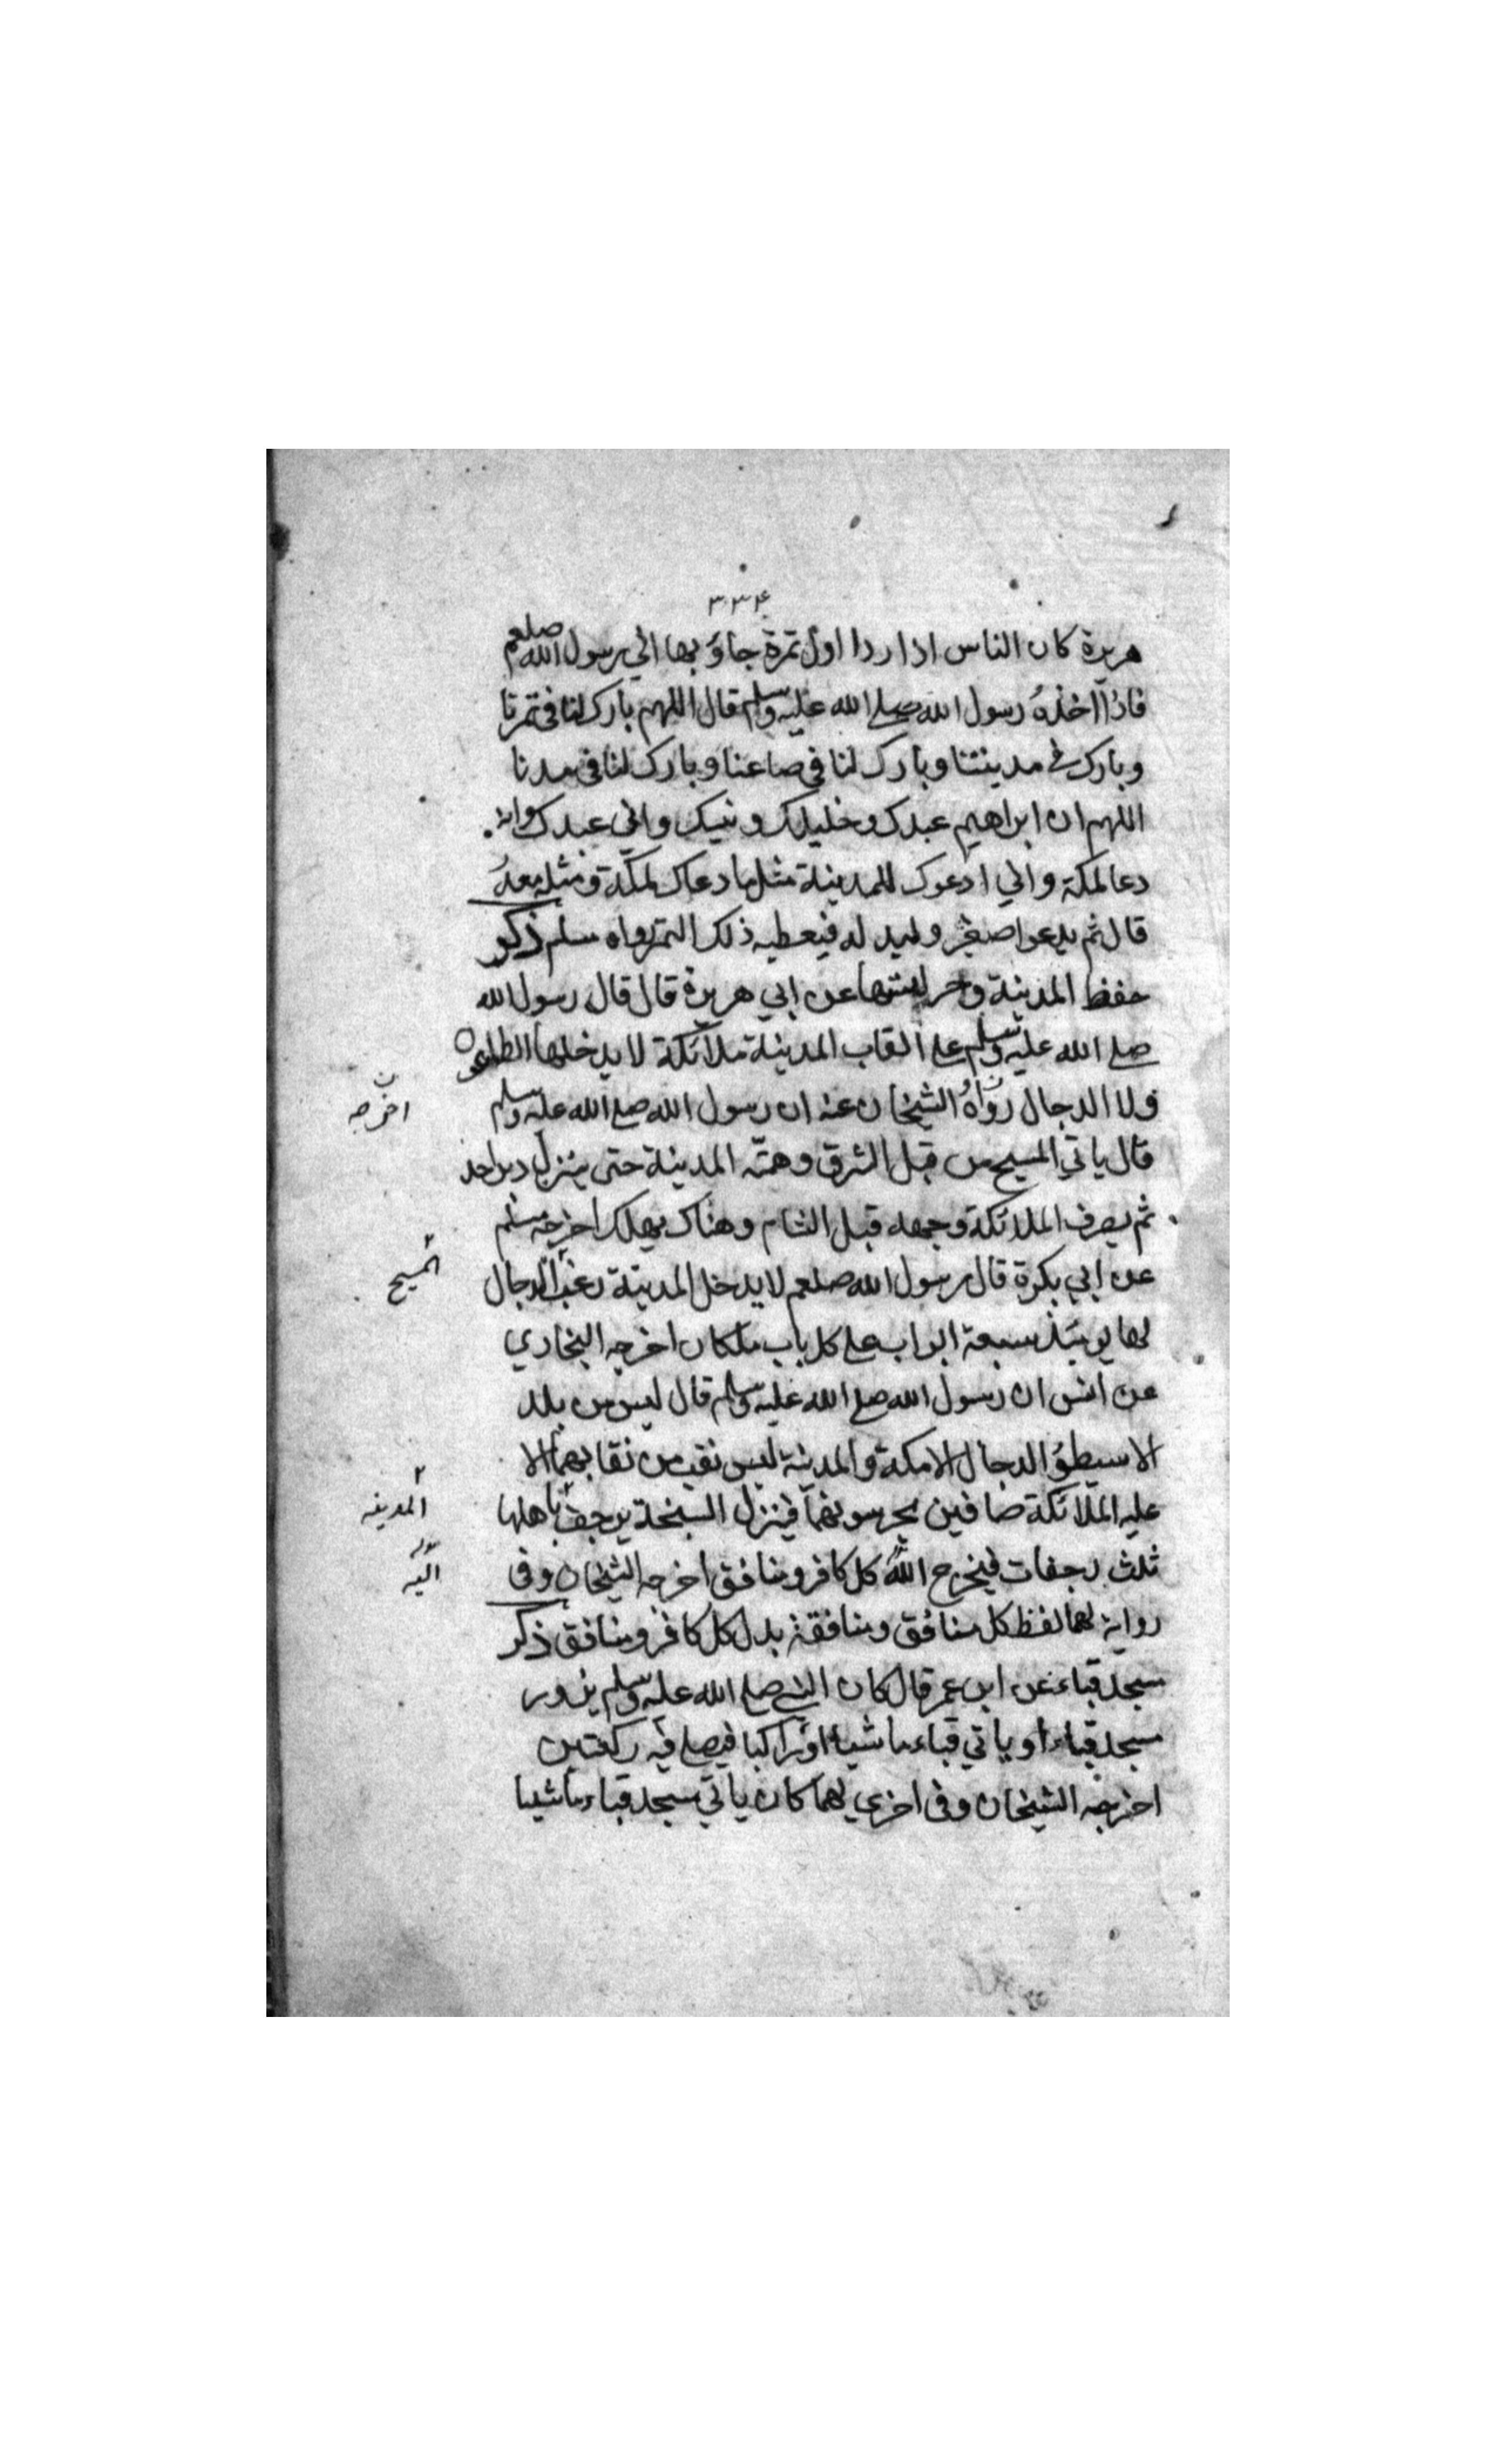 ٣٣٤
هريرة كان الناس اذا ردا اول تمرة جاؤ بها الي رسول الله صلعم
فاذا اخذهُ رسول الله صلے الله عليه وسلم قال اللهم بارك لنا في تمرنا
وبارك في مدينتنا وبارك لنا في صاعنا وبارك لنا في مدنا
اللهم ان ابراهيم عبدك وخليلك ونبيك واني عبدك وانه
دعا لمكة واني ادعوك للمدينة مثل ما دعاك لمكة ومثله معهُ
قال ثم يدعوا صغير وليد له فيعطيه ذلك التمر رواه مسلم ذكر
حفظ المدينة وحراستها عن ابي هريرة قال قال رسول الله
صلے الله عليه وسلم علے انقاب المدينة ملائكة لا يدخلها الطاعون
ولا الدجال رواهُ الشيخان عنه ان رسول الله صلے الله عليه وسلم
اخرجه
قال ياتي المسيح من قبل الشرق وهمته المدينة حتى ينزل دبر احد
ثم يصرف الملائكة وجهه قبل الشام وهناك يهلك اخرجه مسلم
عن ابي بكرة قال رسول الله صلعم لا يدخل المدينة رعب الدجال
المسيح
لها يومئذ سبعة ابواب علے كل باب ملكان اخرجه البخاري
عن انس ان رسول الله صلے الله عليه وسلم قال ليس من بلد
الا سيطؤ الدجال الا مكة والمدينة ليس نقب من نقابهما الا
عليه الملائكة صافين يحرسونهما فينزل السبخة يرجف باهلها
المدينه
ثلث رجفات فيخرج اللهُ كل كافر ومنافق اخرجه الشيخان وفي
اليه
رواية لهما لفظ كل منافق ومنافقة بدل كل كافر ومنافق ذكر
مسجد قباء عن ابن عمر قال كان النبي صلے الله عليه وسلم يزور
مسجد قباء او ياتي قباء ماشيا او راكبا فيصلے فيه ركعتين
اخرجه الشيخان وفي اخري لهما كان ياتي مسجد قباء ماشيا